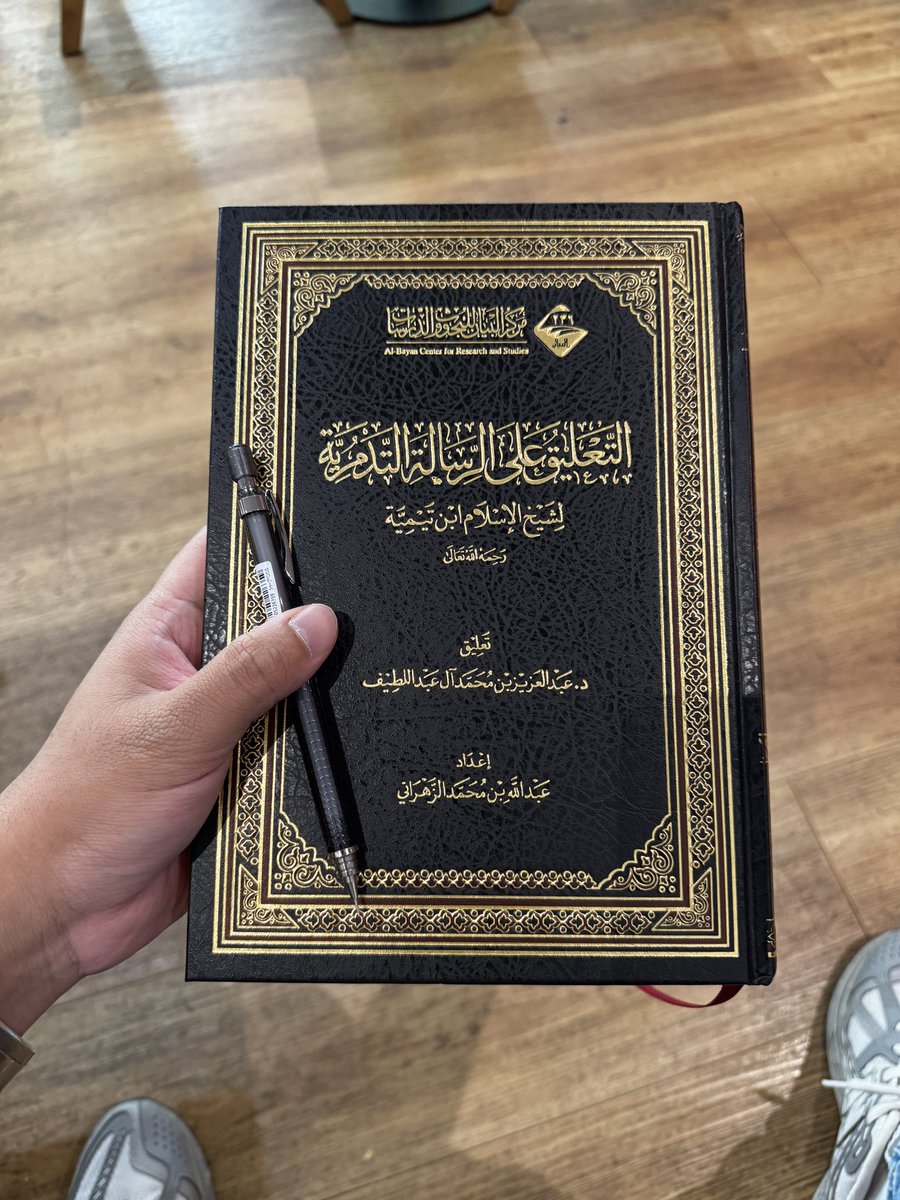 مركز البيان للبحوث والدراسات
Al-Bayan Center for Research and Studies
٢٣٩
البيان
التَّعْلِيقُ عَلَى الرِّسَالَةِ التَّدْمُرِيَّةِ
لِشَيْخِ الإِسْلَامِ ابْنِ تَيْمِيَّةَ
رَحِمَهُ اللَّهُ تَعَالَى
تَعْلِيق
د. عَبْدُ الْعَزِيزِ بْنُ مُحَمَّد آل عَبْدِ اللطِيف
إِعْدَاد
عَبْدُ اللَّهِ بْنُ مُحَمَّد الزَّهْرَانِي